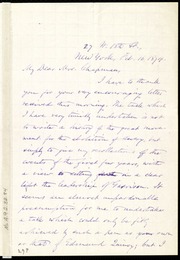 27 W. 15th St.
New York, Oct. 10, 1879.
My Dear Mrs. Chapman,
I have to thank
you for your very encouraging letter
received this morning. The task which
I have very timidly undertaken is
not to write a history of the great move-
ment for the abolition of slavery, but
simply to give my recollections of the
events of the first few years, with
a view to setting forth in a clear
light the leadership of Garrison. It
seems an almost unpardonable
presumption for me to undertake
a task which could only be fitly
achieved by such a pen as your own
or that of Edmund Quincy; but I